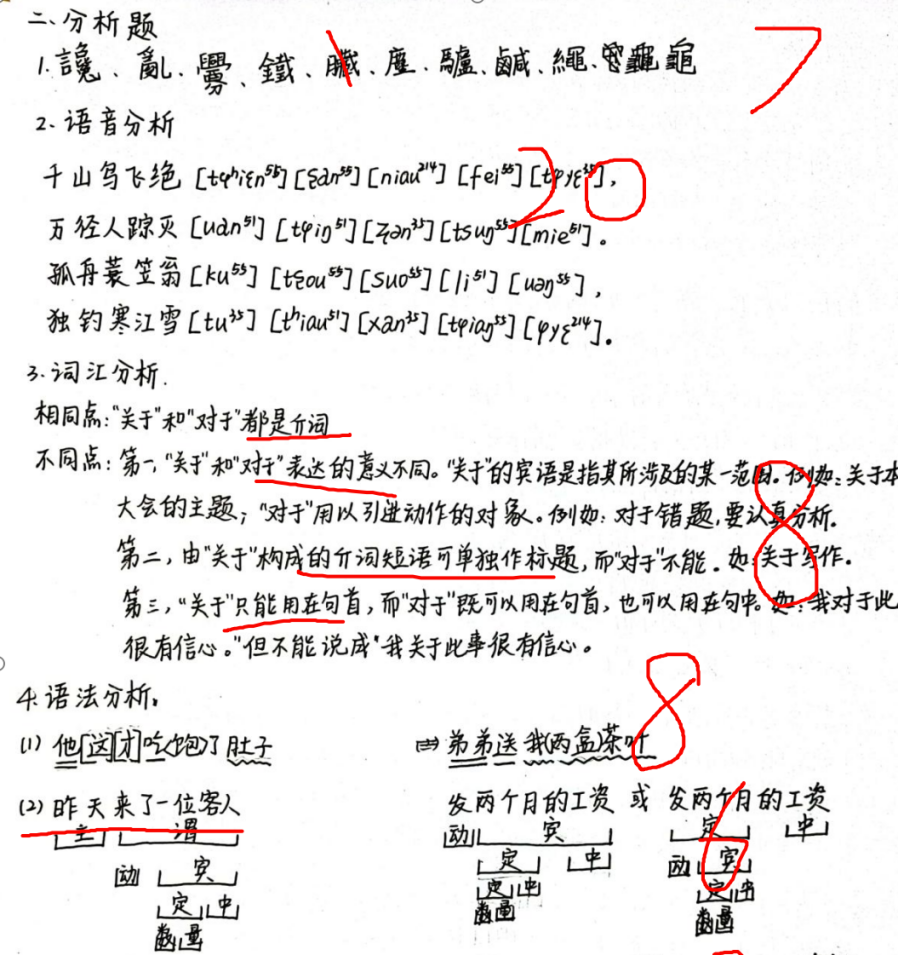 二、分析题
1.讒、亂、釁、鐵、、塵、驢、鹹、繩、竈 龜 7
2.语音分析 20
千山鸟飞绝 [tɕʰiɛn⁵⁵] [ʂan⁵⁵] [niau²¹⁴] [fei⁵⁵] [tɕyɛ³⁵],
万径人踪灭 [uan⁵¹] [tɕiŋ⁵¹] [ʐən³⁵] [tsuŋ⁵⁵] [mie⁵¹]。
孤舟蓑笠翁 [ku⁵⁵] [tʂou⁵⁵] [suo⁵⁵] [li⁵¹] [uəŋ⁵⁵],
独钓寒江雪 [tu³⁵] [tʰiau⁵¹] [xan³⁵] [tɕiaŋ⁵⁵] [ɕyɛ²¹⁴]。
3.词汇分析.
相同点:"关于"和"对于"都是介词
不同点:第一,"关于"和"对于"表达的意义不同。"关于"的宾语是指其所涉及的某一范围。例如:关于本
大会的主题;"对于"用以引进动作的对象。例如:对于错题,要认真分析。 8
第二,由"关于"构成的介词短语可单独作标题,而"对于"不能。如:关于写作。
第三,"关于"只能用在句首,而"对于"既可以用在句首,也可以用在句中。如:我对于此
很有信心。"但不能说成"我关于此事很有信心。
4.语法分析。 8
(1) 他[这][才]吃饱了肚子 弟弟送我(两盒)茶叶
(2) 昨天来了一位客人 发两个月的工资 或 发两个月的工资
主 谓 动 宾 定 中
动 宾 定 中 动 宾 6
定 中 定 中 定 中
数 量 数 量 数 量